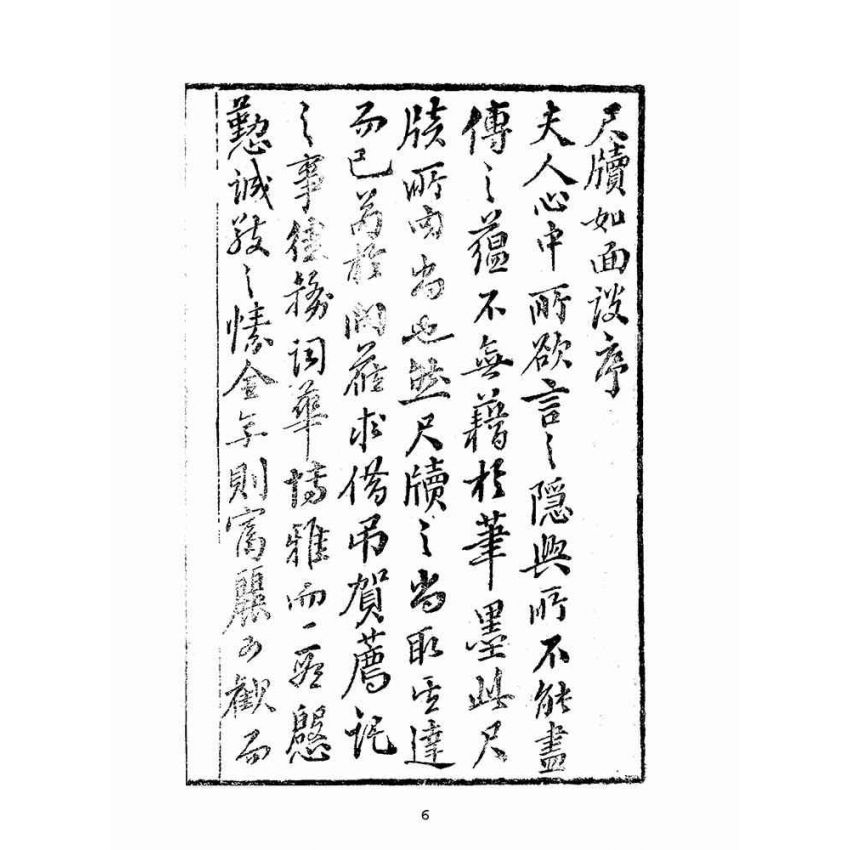 尺牘如面談序
夫人心中所欲言之隱與所不能盡
傳之蘊不無藉於筆墨此尺
牘所由尚也然尺牘之尚取其達
而已若於問薦求借吊賀薦託
之事徒務詞華博雅而一段慇
懃誠敬之愫全無則富麗可觀而
6